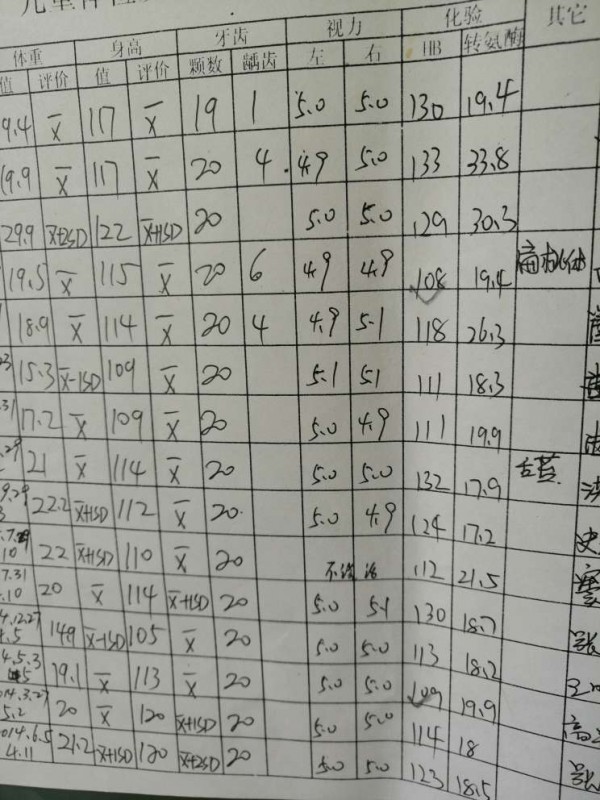 体重 身高 牙齿 视力 化验 其它
值 评价 值 评价 颗数 龋齿 左 右 HB 转氨酶
9.4 x̄ 117 x̄ 19 1 5.0 5.0 130 19.4
19.9 x̄ 117 x̄ 20 4 4.9 5.0 133 33.8
29.9 x̄+2SD 122 x̄+1SD 20 5.0 5.0 129 30.3
19.5 x̄ 115 x̄ 20 6 4.9 4.9 108 19.4
18.9 x̄ 114 x̄ 20 4 4.9 5.1 118 26.3
15.3 x̄-1SD 109 x̄ 20 5.1 5.1 111 18.3
17.2 x̄ 109 x̄ 20 5.0 4.9 111 19.9
21 x̄ 114 x̄ 20 5.0 5.0 132 17.9 舌苔
22.2 x̄+1SD 112 x̄ 20 5.0 4.9 124 17.2
22 x̄+1SD 110 x̄ 20 112 21.5
20 x̄ 114 x̄+1SD 20 5.0 5.1 130 18.7
149 x̄-1SD 105 x̄ 20 5.0 5.0 113 18.2
19.1 x̄ 113 x̄ 20 5.0 5.0 109 19.9
20 x̄ 120 x̄+1SD 20 5.0 5.0 114 18
21.2 x̄+1SD 120 x̄+2SD 20 5.0 5.0 123 18.5